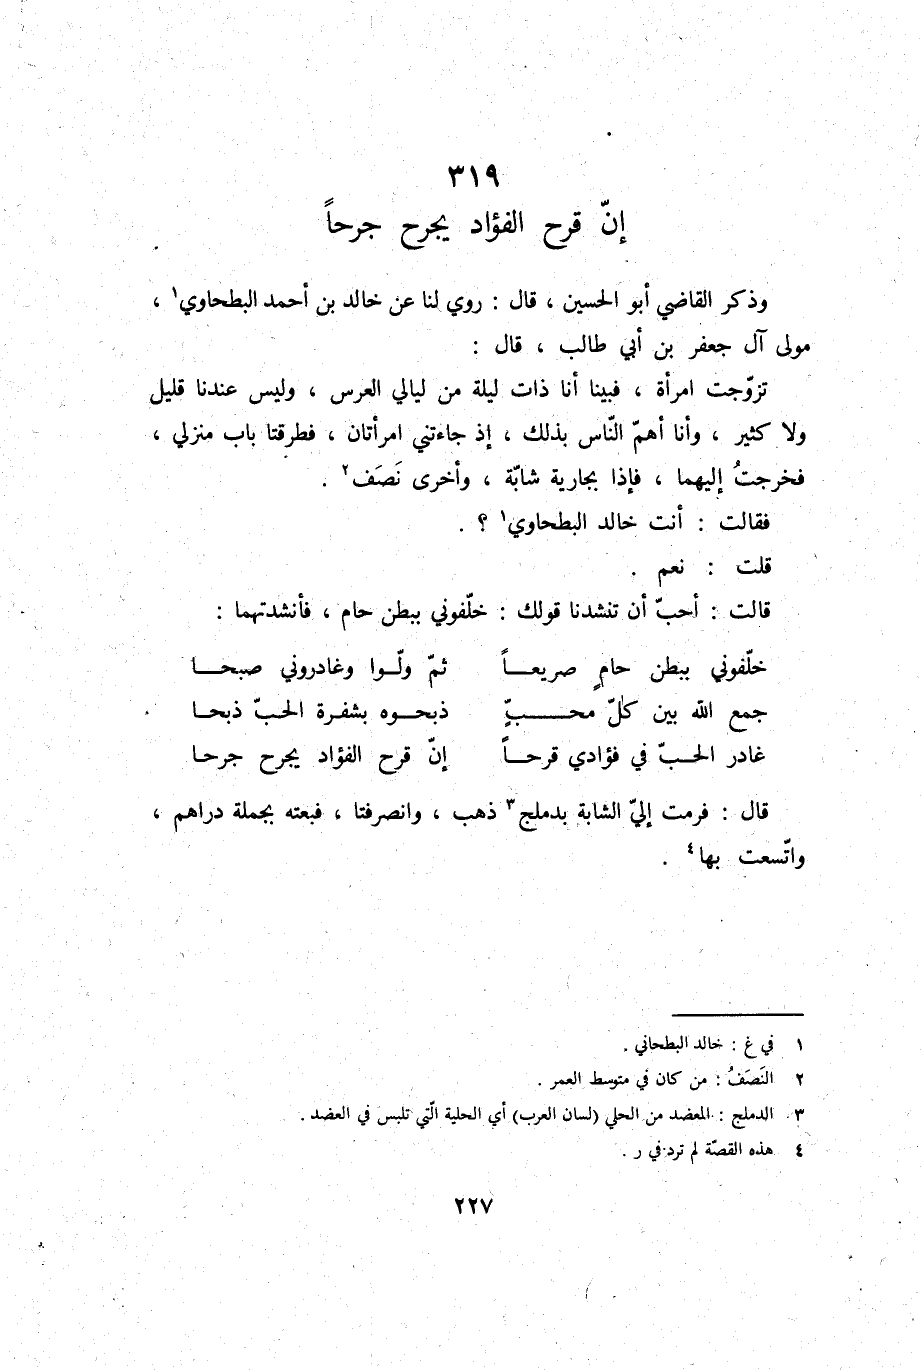 ٣١٩
إنّ قرح الفؤاد يجرح جرحاً
وذكر القاضي أبو الحسين ، قال : روي لنا عن خالد بن أحمد البطحاوي١ ،
مولى آل جعفر بن أبي طالب ، قال :
تزوّجت امرأة ، فبينا أنا ذات ليلة من ليالي العرس ، وليس عندنا قليل
ولا كثير ، وأنا أهمّ النّاس بذلك ، إذ جاءتني امرأتان ، فطرقتا باب منزلي ،
فخرجتُ إليهما ، فإذا بجارية شابّة ، وأخرى نَصَف٢ .
فقالت : أنت خالد البطحاوي١ ؟ .
قلت : نعم .
قالت : أحبّ أن تنشدنا قولك : خلّفوني ببطن حام ، فأنشدتهما :
خلّفوني ببطن حامٍ صريعـــاً ثمّ ولّــوا وغادروني صبحـــا
جمع الله بين كلّ محـــــبٍّ ذبحـــوه بشفـرة الحـبّ ذبحـا
غادر الحـــبّ في فؤادي قرحـــاً إنّ قرح الفؤاد يجرح جرحـا
قال : فرمت إليّ الشابة بدملج٣ ذهب ، وانصرفتا ، فبعته بجملة دراهم ،
واتّسعت بها٤ .
١ في غ : خالد البطحاني .
٢ النَصَفُ : من كان في متوسط العمر .
٣ الدملج : المعضد من الحلي (لسان العرب) أي الحلية الّتي تلبس في العضد .
٤ هذه القصّة لم ترد في ر .
٢٢٧